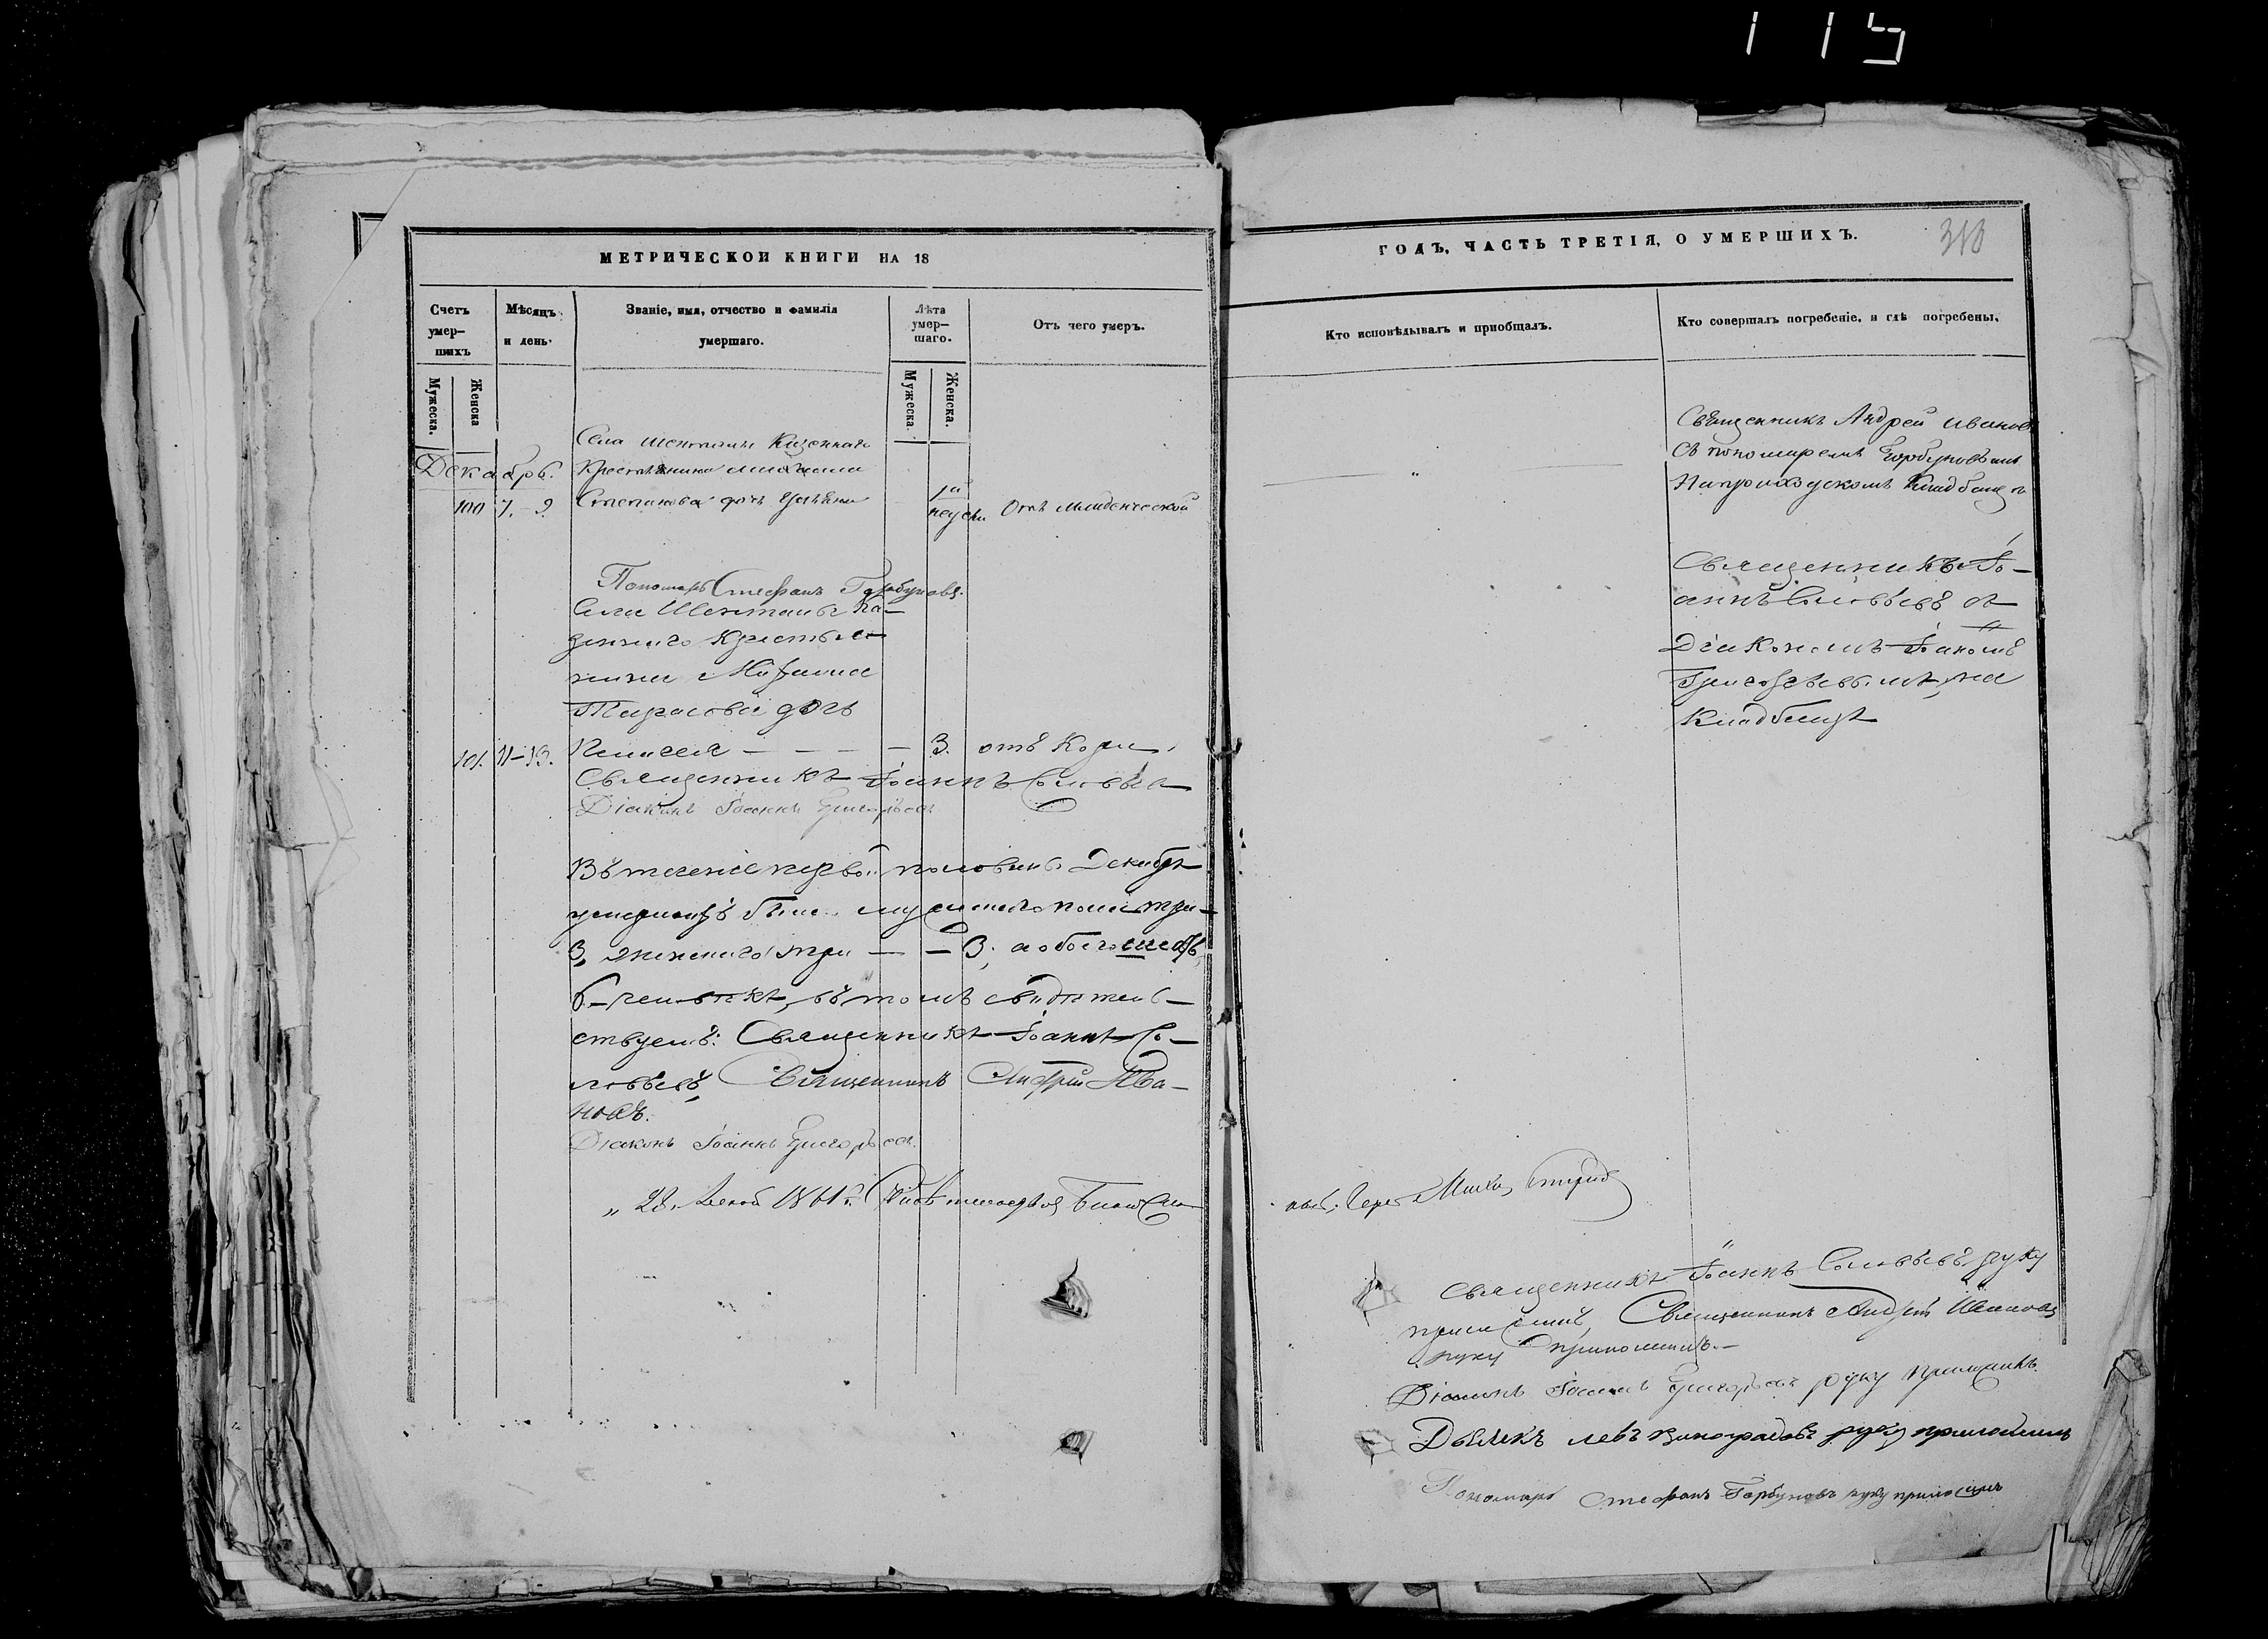 115
МЕТРИЧЕСКОЙ КНИГИ НА 18
Счетъ умер-шихъ
Мужеска.
Женска
Мѣсяцъ и день.
Званіе, имя, отчество и фамилія умершаго.
Лѣта умер-шаго.
Мужеска.
Женска.
Отъ чего умеръ.
Села Шенталы Казеннаго
Декабрь.
Крестьянина
100 7. 9. Степанова дочь Отъ младенческой
Пономарь Стефанъ Горбуновъ.
Села Шенталы Ка-
зеннаго Крестья-
нина
Тарасова дочь
101. 11-13. Пелагея — — — — 3. отъ Кори.
Священникъ Іоаннъ Соловьевъ
Діаконъ Іоаннъ Григорьевъ
Въ теченіе первой половины Декабря
умершихъ было мужескаго пола три —
3, женскаго три — — 3, а обоего шесть
6 — человѣкъ, въ томъ свидѣтель-
ствуемъ: Священникъ Іоаннъ Со-
ловьевъ, Священникъ Андрей Ива-
новъ.
Діаконъ Іоаннъ Григорьевъ.
„ 28. Декаб 1861 г.
ГОДЪ, ЧАСТЬ ТРЕТІЯ, О УМЕРШИХЪ.
Кто исповѣдывалъ и пріобщалъ.
Кто совершалъ погребеніе, и гдѣ погребены.
Священникъ Андрей Ивановъ
съ пономаремъ Горбуновымъ
На приходскомъ Кладбищѣ
Священникъ Іо-
аннъ Соловьевъ съ
Діакономъ Іоаномъ
Григорьевымъ, на
Кладбищѣ
Священникъ Іоаннъ Соловьевъ руку
приложилъ, Священникъ Андрей Ивановъ
руку приложилъ. —
Діаконъ Іоаннъ Григорьевъ руку приложилъ.
Дьячекъ Левъ Виноградовъ руку приложилъ
Пономарь Стефанъ Горбуновъ руку приложилъ